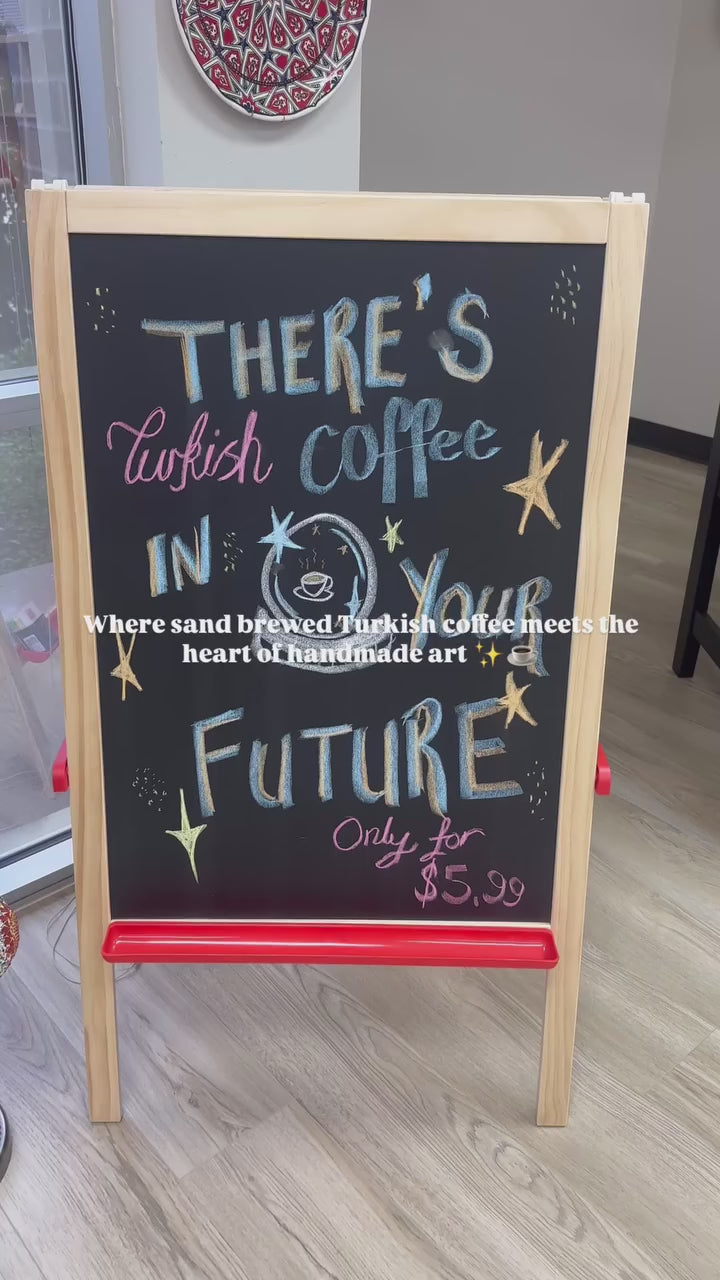 THERE'S
Turkish coffee
IN YOUR
Where sand brewed Turkish coffee meets the
heart of handmade art ✨☕
FUTURE
Only for
$5.99